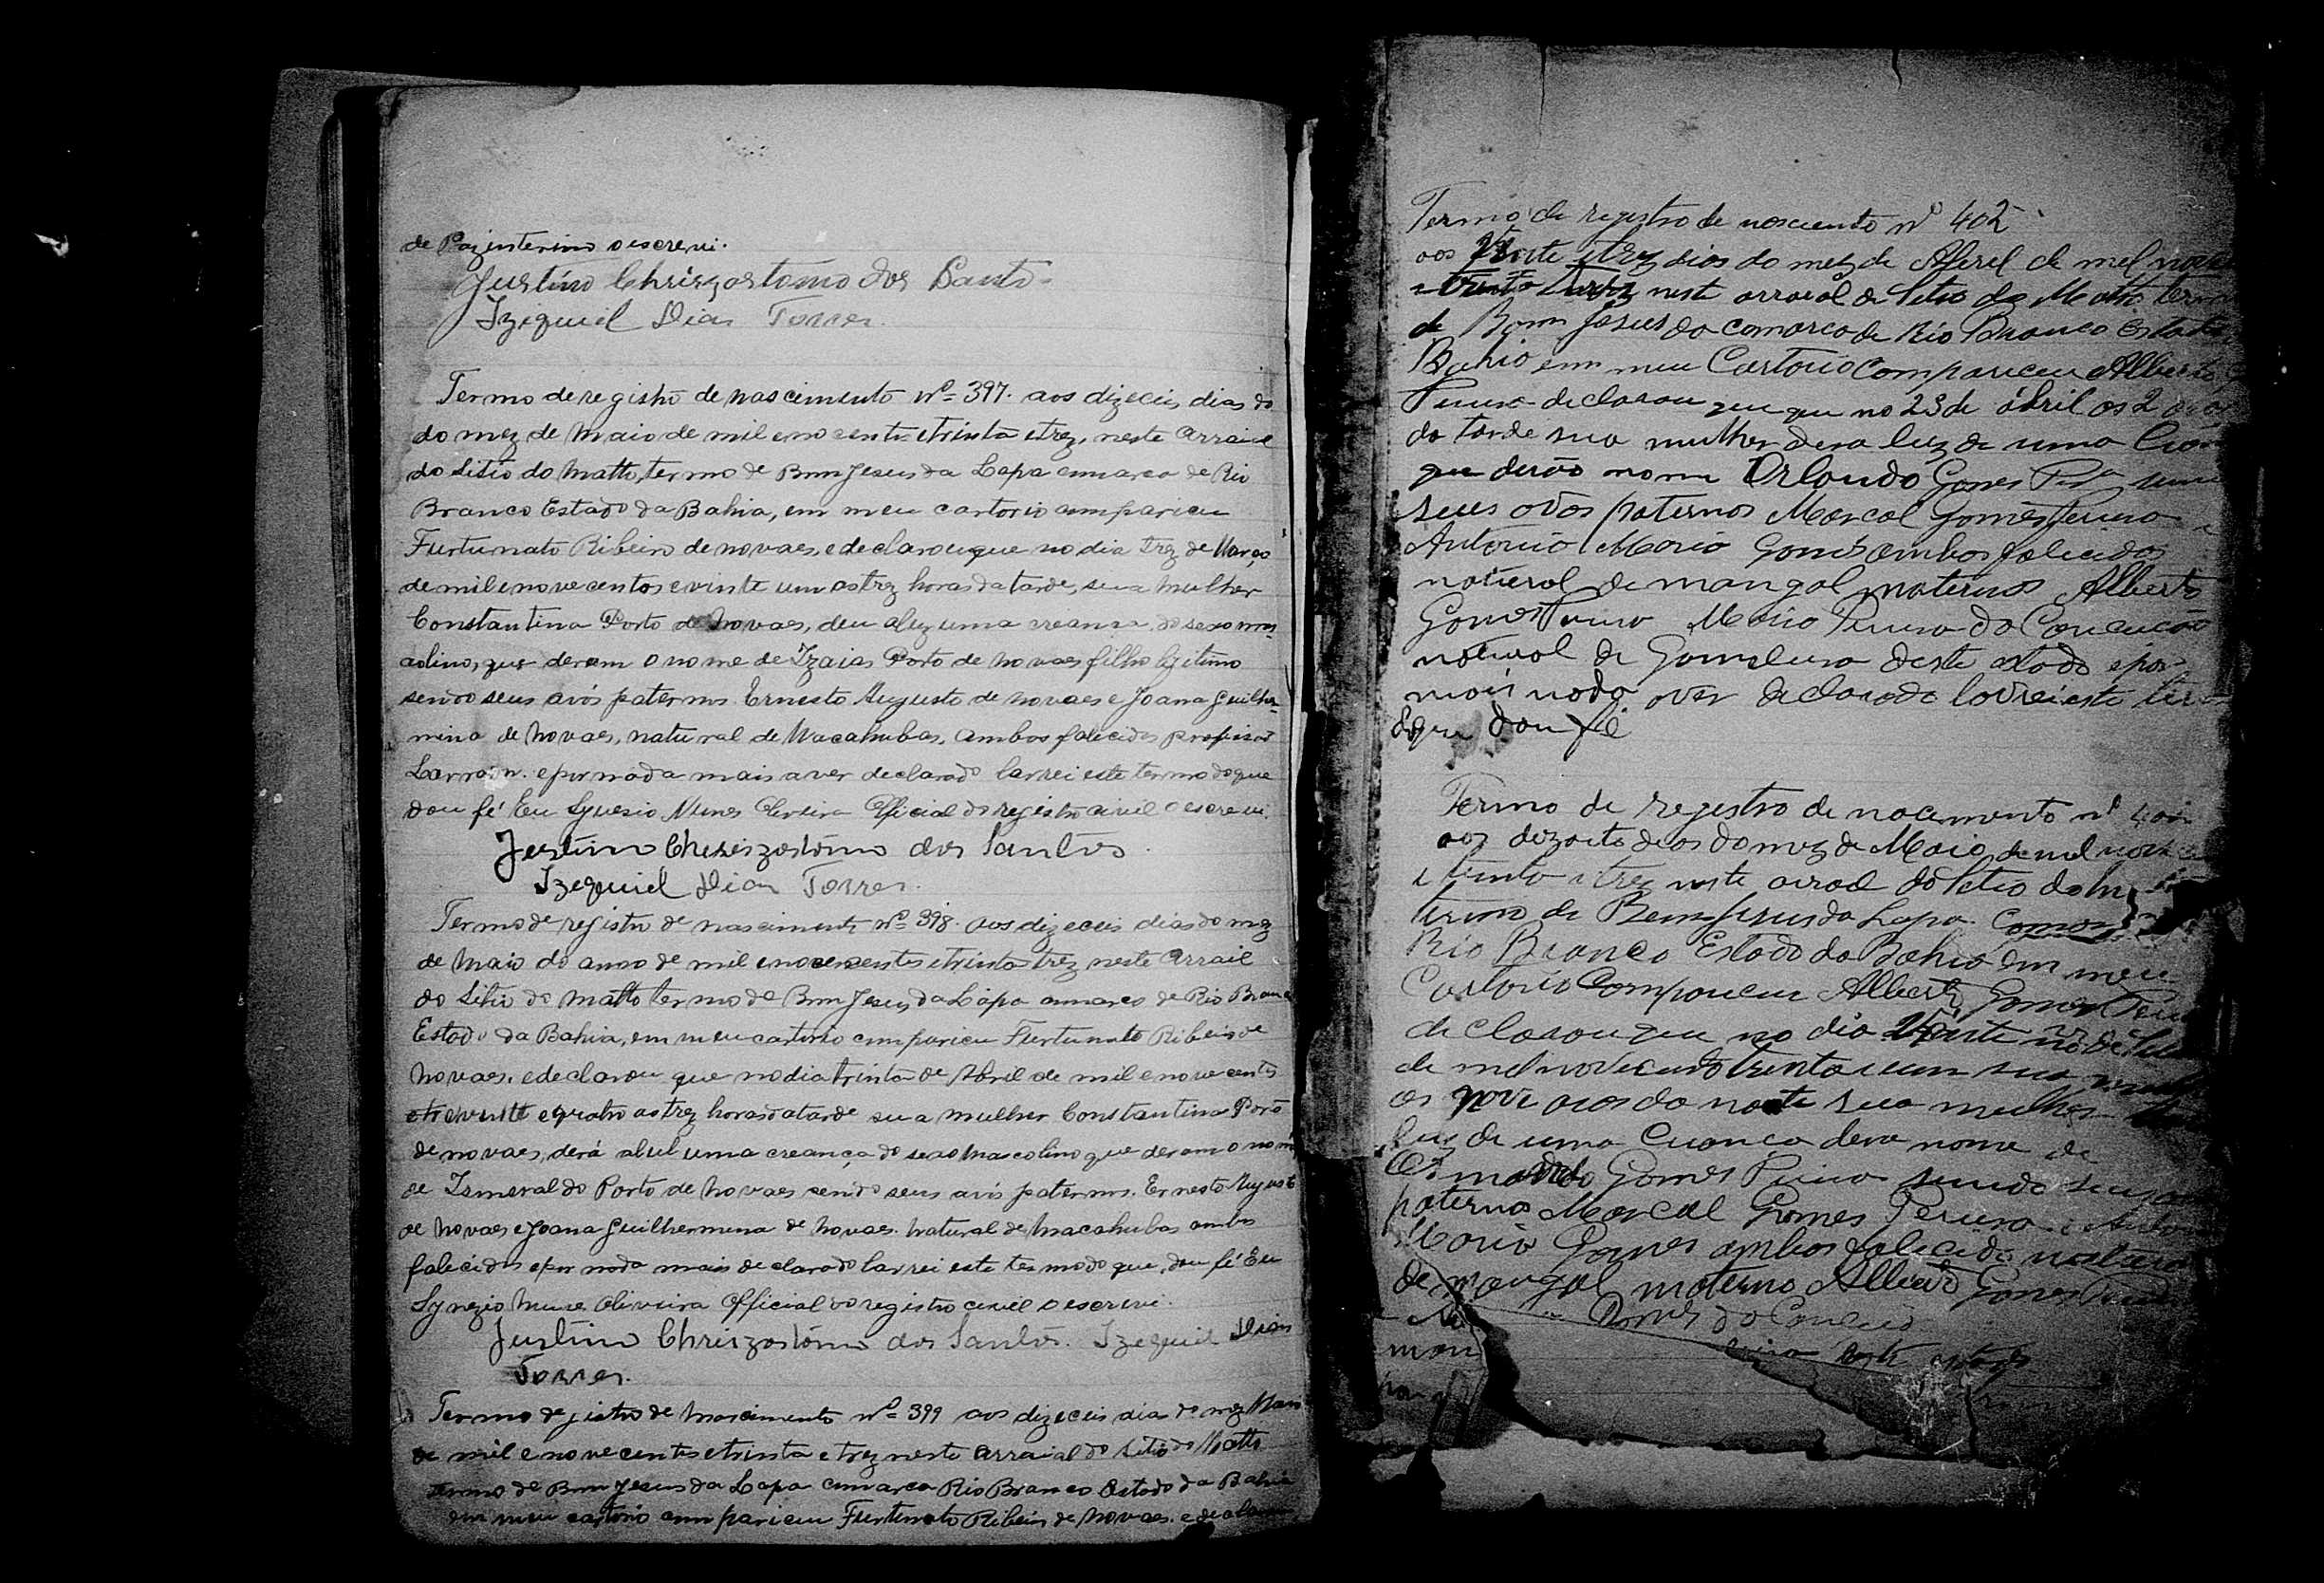 de Paz interino o escrevi.
Justino Chriszostomo dos Santos
Izequiel Dias Torres.
Termo de registro de nascimento Nº 397. aos dizeceis dias do
do mez de Maio de mil e nocentos e trinta e trez, neste Arraial
do Sitio do Matto, termo de Bom Jesus da Lapa comarca de Rio
Branco Estado da Bahia, em meu cartorio compariceu
Furtunato Ribeiro de Novaes, e declarou que no dia trez de Março
de mil e nove centos e vinte um as trez horas da tarde, sua mulher
Constantina Porto de Novaes, deu a luz uma creança do sexo mas-
colino, que deram o nome de Izaias Porto de Novaes filho ligitimo
sendo seus avós paternos Ernesto Augusto de Novaes e Joana Guilher-
mina de Novaes, natural de Macahubas, ambos falecidos
e por nada mais aver declarado larvei este termo do que
dou fé Eu Synesio Nunes Oliveira Official do registro civil o escrevi.
Justino Chriszostomo dos Santos.
Izequiel Dias Torres.
Termo de registro de nascimento Nº 398. aos dizeceis dias do mez
de Maio do anno de mil e novecentos e trinta trez neste Arrail
do Sitio do Matto termo de Bom Jesus da Lapa comarca de Rio Branco
Estado da Bahia, em meu cartorio compariceu Furtunato Ribeiro de
Novaes. e declarou que no dia trinta de Abril de mil e nove centos
e vinte e quatro as trez horas da tarde sua mulher Constantina Porto
de Novaes, derá a luz uma creança do sexo mascolino que deram o nome
de Ismeraldo Porto de Novaes sendo seus avós paternos. Ernesto Augusto
de Novaes e Joana Guilhermina de Novaes. Natural de Macahubas ambos
falecidos e por nada mais declarado larvei este termo do que, dou fé Eu
Synezio Nunes Oliveira Official do registro civil o escrevi.
Justino Chriszostomo dos Santos. Izequiel Dias
Torres.
Termo de gistro de Nascimento Nº 399 aos dizeceis dia do mez Maio
de mil e nove centos e trinta e trez neste Arraial do Sitio do Matto
termo de Bom Jesus da Lapa comarca Rio Branco Estado da Bahia
em meu cartorio compariceu Furtunato Ribeiro de Novaes. e declarou
Termo de registro de nascimento nº 402
aos Vinte e trez dias do mez de Abril de mil nove
e trinta e trez neste arraial de Sitio do Matto termo
de Bom Jesus da comarca de Rio Branco Estado
Bahia em meu Cartorio Compariceu Alberto
Pereira declarou que que no 23 de abril as 2 oras
da tarde sua mulher dera luz de uma Crian
que derão nome Orlando Gomes sendo
seus avós paternos Marcal Gomes Pereira
Antonia Maria Gomes ambos falecidos
natural de mangal maternos Alberto
Gomes Pereira Maria Pereira da Conceição
natural de Gameleira deste estado e por
mais nada aver declarado lavrei este ter
do que dou fé
Termo de registro de nacimento nº
aos dezoito dias do mez de Maio de mil nove
e trinta e trez neste arraial do Sitio do
termo de Bom Jesus da Lapa Comar
Rio Branco Estado da Bahia em meu
Cartorio Compareceu Alberto Gomes
declarou que no dia Vinte
de mil novecento trinta e um sua
as nove oras da noite sua mulher
luz de uma Creança dera nome de
Gomes Pereira sendo seus
paternos Marcal Gomes Pereira e
Maria Gomes ambos falecido
de mangal materno Alberto Gomes
da Conceicão
deste estado